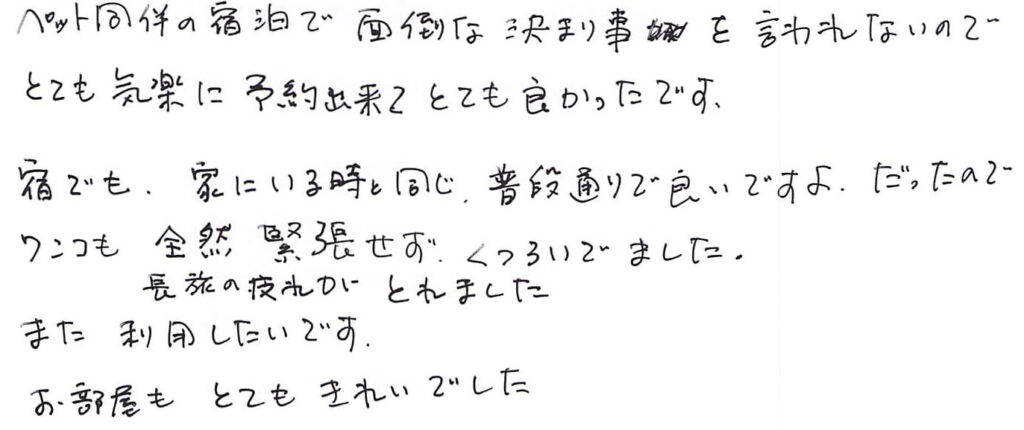 ペット同伴の宿泊で 面倒な決まり事を言われないので
とても気楽に予約出来てとても良かったです、
宿でも、家にいる時と同じ、普段通りで良いですよ、だったので
ワンコも 全然緊張せず、くつろいでました。
長旅の疲れがとれました
また利用したいです。
お部屋も とてもきれいでした